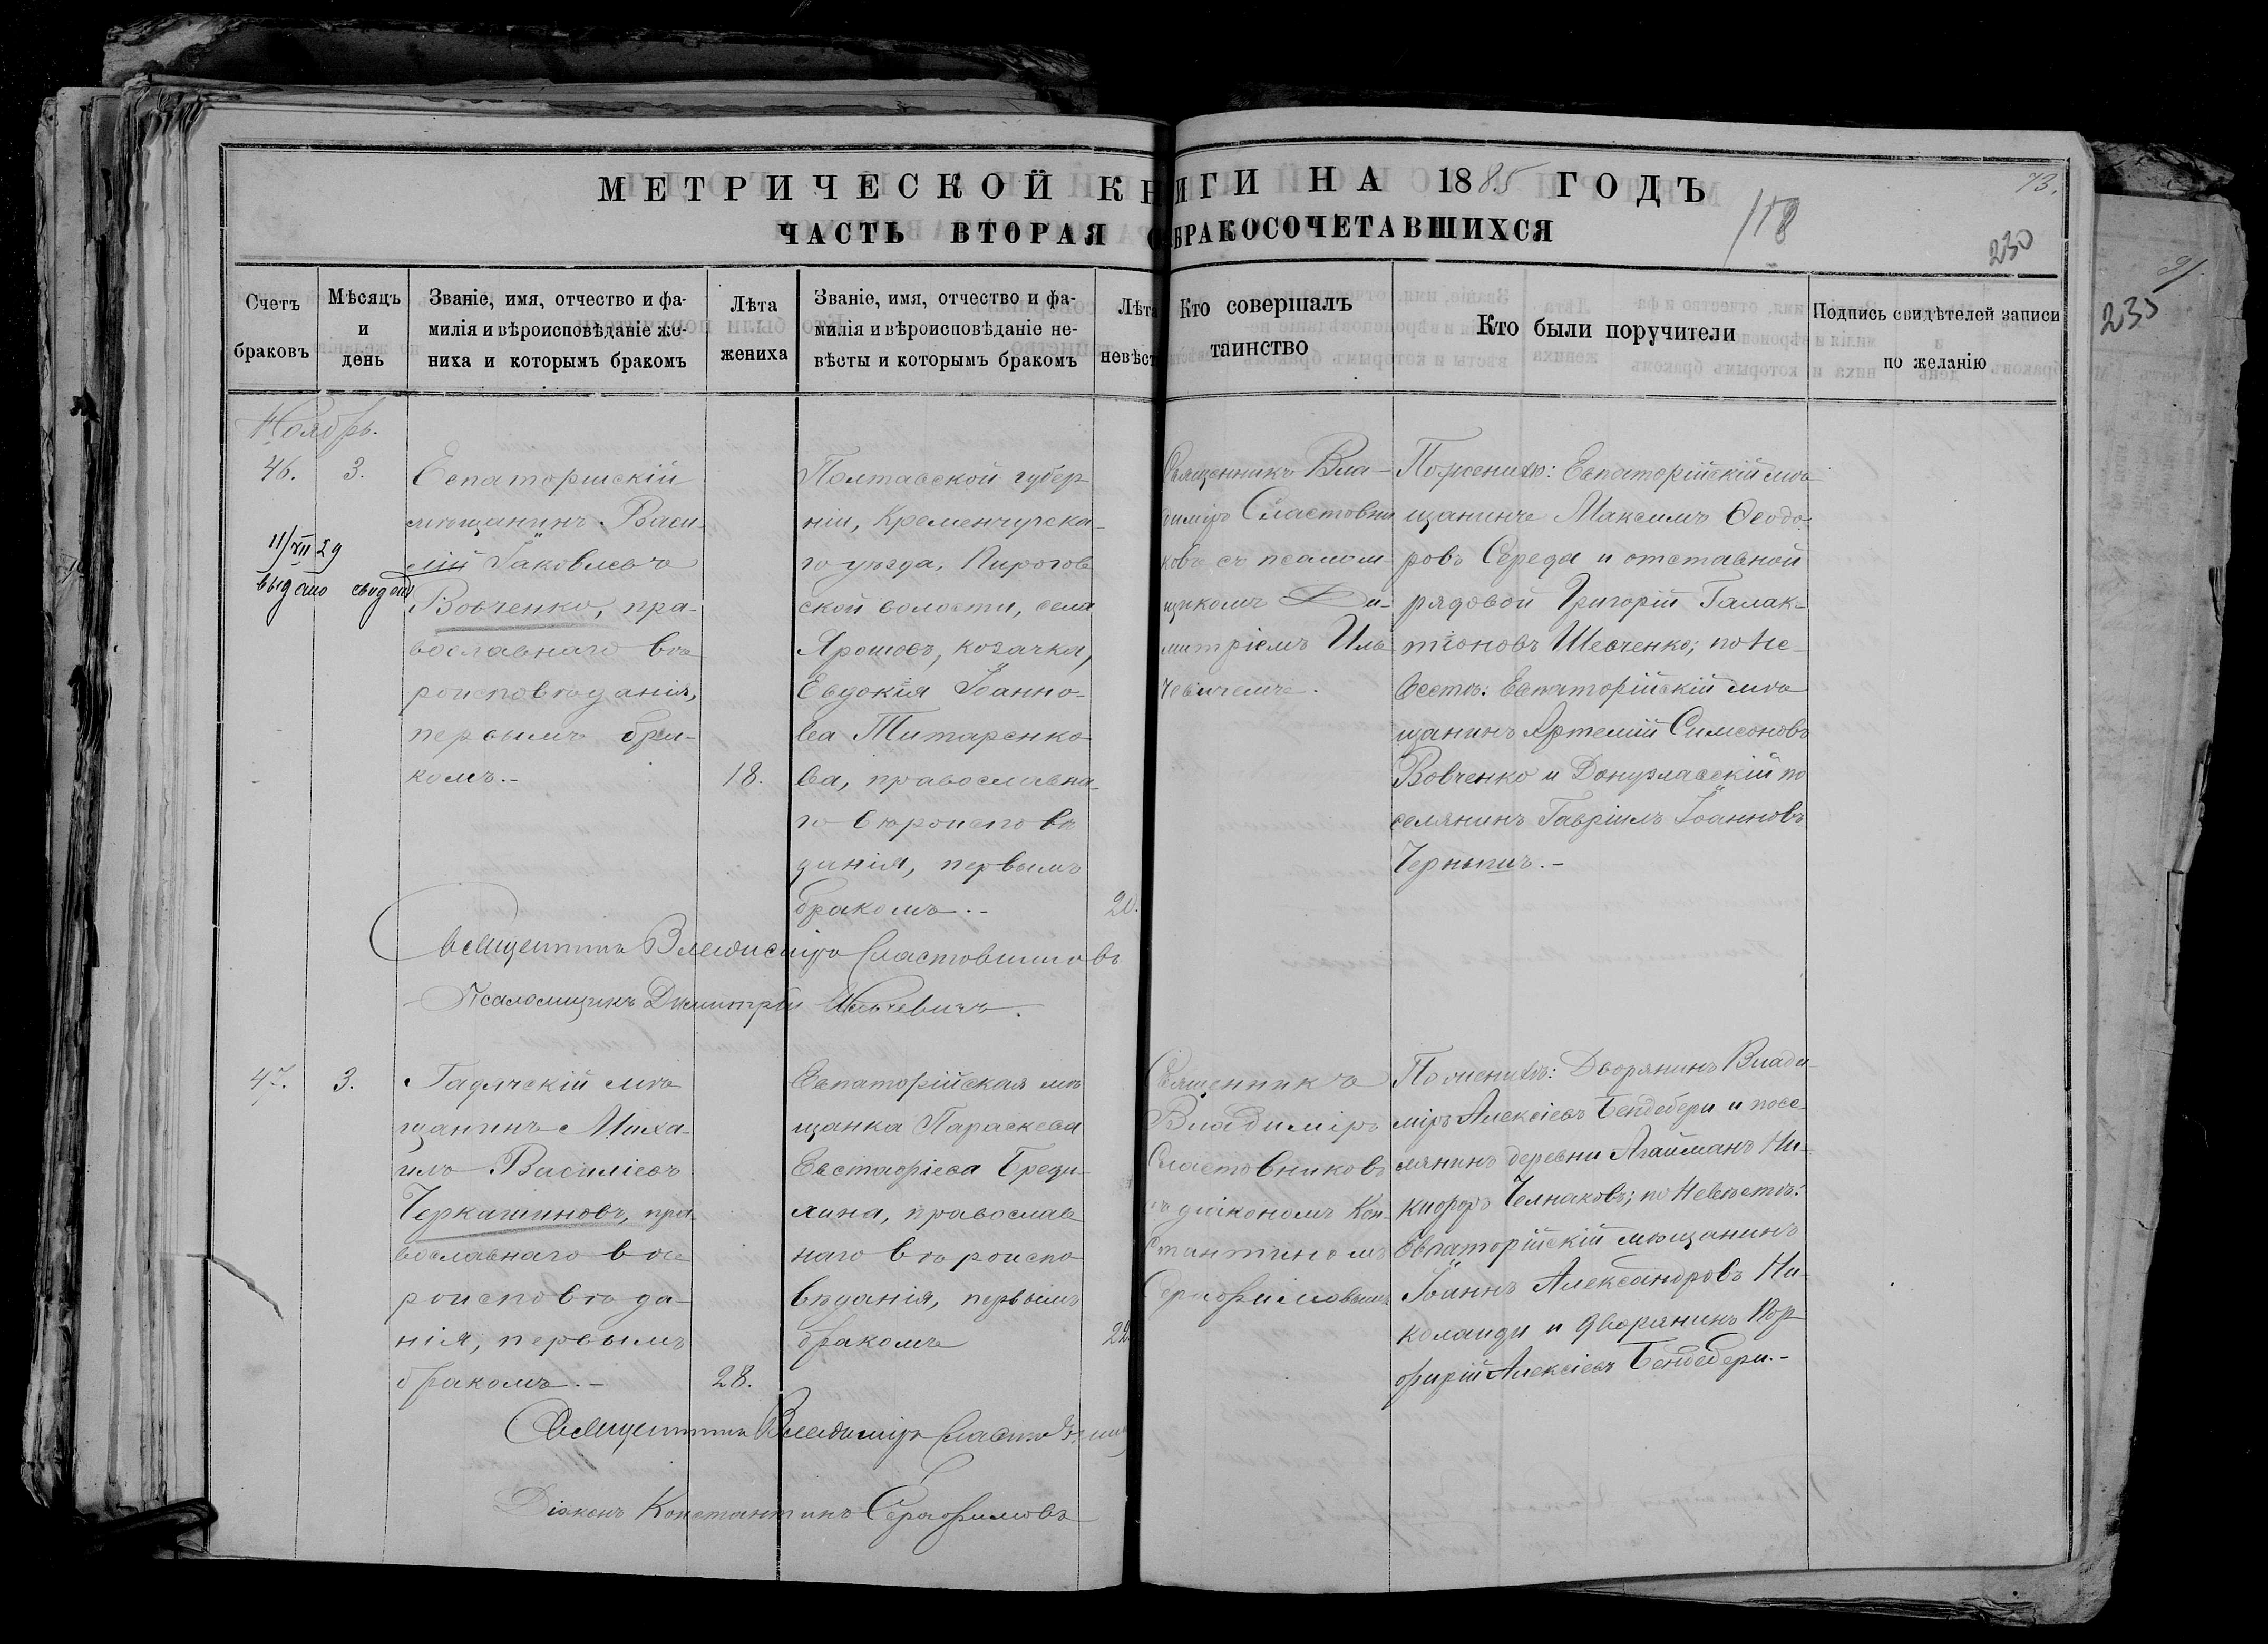 МЕТРИЧЕСКОЙ КНИГИ НА 1885 ГОДЪ
73.
ЧАСТЬ ВТОРАЯ О БРАКОСОЧЕТАВШИХСЯ
118
230
235
Счетъ браковъ
Мѣсяцъ и день
Званіе, имя, отчество и фа-
милія и вѣроисповѣданіе же-
ниха и которымъ бракомъ
Лѣта
жениха
Званіе, имя, отчество и фа-
милія и вѣроисповѣданіе не-
вѣсты и которымъ бракомъ
Лѣта
невѣст
Кто совершалъ
таинство
Кто были поручители
Подпись свидѣтелей записи
по желанію
Ноябрь.
46.
3.
11/VII 29
выдано
Евпаторійскій
мѣщанинъ Васи-
лій Іаковлевъ
Вовченко, пра-
вославнаго вѣ
роисповѣданія,
первымъ бра-
комъ.-
18.
Полтавской губер
ніи, Кременчугска-
го уѣзда, Пирогов
ской волости, села
Ярошовъ, козачка,
Евдокія Іоанно-
ва Титаренко
ва, православна-
го вѣроисповѣ
данія, первымъ
бракомъ.-
20.
Священникъ Вла-
диміръ Сластовни
ковъ съ псалом
щикомъ Ди-
митріемъ Иль
чевичемъ.
По женихѣ: Евпаторійскій мѣ
щанинъ Максимъ Ѳеодо-
ровъ Середа и отставной
рядовой Григорій Галак-
тіоновъ Шевченко; по не-
вѣстѣ: Евпаторійскій мѣ
щанинъ Артемій Симеоновъ
Вовченко и Донузлавскій по
селянинъ Гавріилъ Іоанновъ
Священникъ Владиміръ Сластовниковъ
Псаломщикъ Димитрій Ильчевичъ.
47.
3.
Гадячскій мѣ
щанинъ Миха-
илъ Василіевъ
Черкашиновъ, пра
вославнаго вѣ
роисповѣда-
нія, первымъ
бракомъ.-
28.
Евпаторійская мѣ
щанка Параскева
Евстафіева Бреди
хина, православ
наго вѣроиспо
вѣданія, первымъ
бракомъ
22
Священникъ
Владиміръ
Сластовниковъ
съ діакономъ Кон-
стантиномъ
Серафимовымъ
По женихѣ: Дворянинъ Влади
міръ Алексіевъ Бендебери и посе-
лянинъ деревни Агайманъ Ни-
кифоръ Челнаковъ; по невѣстѣ:
Евпаторійскій мѣщанинъ
Іоаннъ Александровъ Ни-
коланди и дворянинъ Пор
фирій Алексіевъ Бендебери.-
Священникъ Владиміръ
Діаконъ Константинъ Серафимовъ